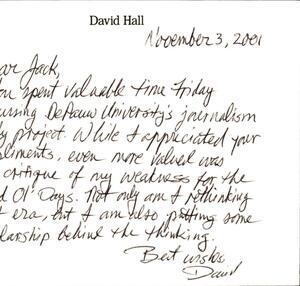 David Hall
November 3, 2001
ar Jack,
ou spent valuable time Friday
uring DePauw University's journalism
y project. While I appreciated your
pliments, even more valued was
critique of my weakness for the
d Ol' Days. Not only am I rethinking
t era, but I am also putting some
larship behind the thinking.
Best wishes
David